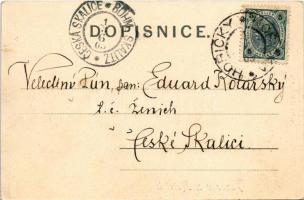 ČESKÁ SKALICE * BÖHM. SKALITZ
1
6
03
DOPISNICE.
HOŘIČKY
Velectěný Pan, pan: Eduard Kotarský
t.č. ženich
České Skalici